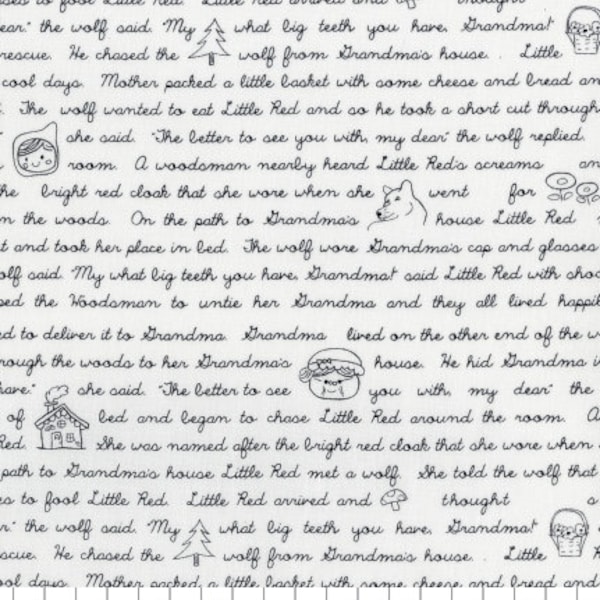 to fool Little Red. Little Red arrived and thought
dear." the wolf said. "My what big teeth you have, Grandma!"
rescue. He chased the wolf from Grandma's house. . Little
cool days. Mother packed a little basket with some cheese and bread an
The wolf wanted to eat Little Red and so he took a short cut through
she said. "The better to see you with, my dear" the wolf replied.
room. A woodsman nearby heard Little Red's screams an
the bright red cloak that she wore when she went for
in the woods. On the path to Grandma's house Little Red
t and took her place in bed. The wolf wore Grandma's cap and glasses
olf said. "My what big teeth you have, Grandma!" said Little Red with shoc
ped the Woodsman to untie her Grandma and they all lived happil
ed to deliver it to Grandma. Grandma lived on the other end of the w
rough the woods to her Grandma's house. He hid Grandma i
have." she said. "The better to see you with, my dear" the
of bed and began to chase Little Red around the room. A
Red. She was named after the bright red cloak that she wore when
path to Grandma's house Little Red met a wolf. She told the wolf that
es to fool Little Red. Little Red arrived and thought s
r." the wolf said. "My what big teeth you have, Grandma!"
scue. He chased the wolf from Grandma's house. . Little
ool days. Mother packed a little basket with some cheese and bread and